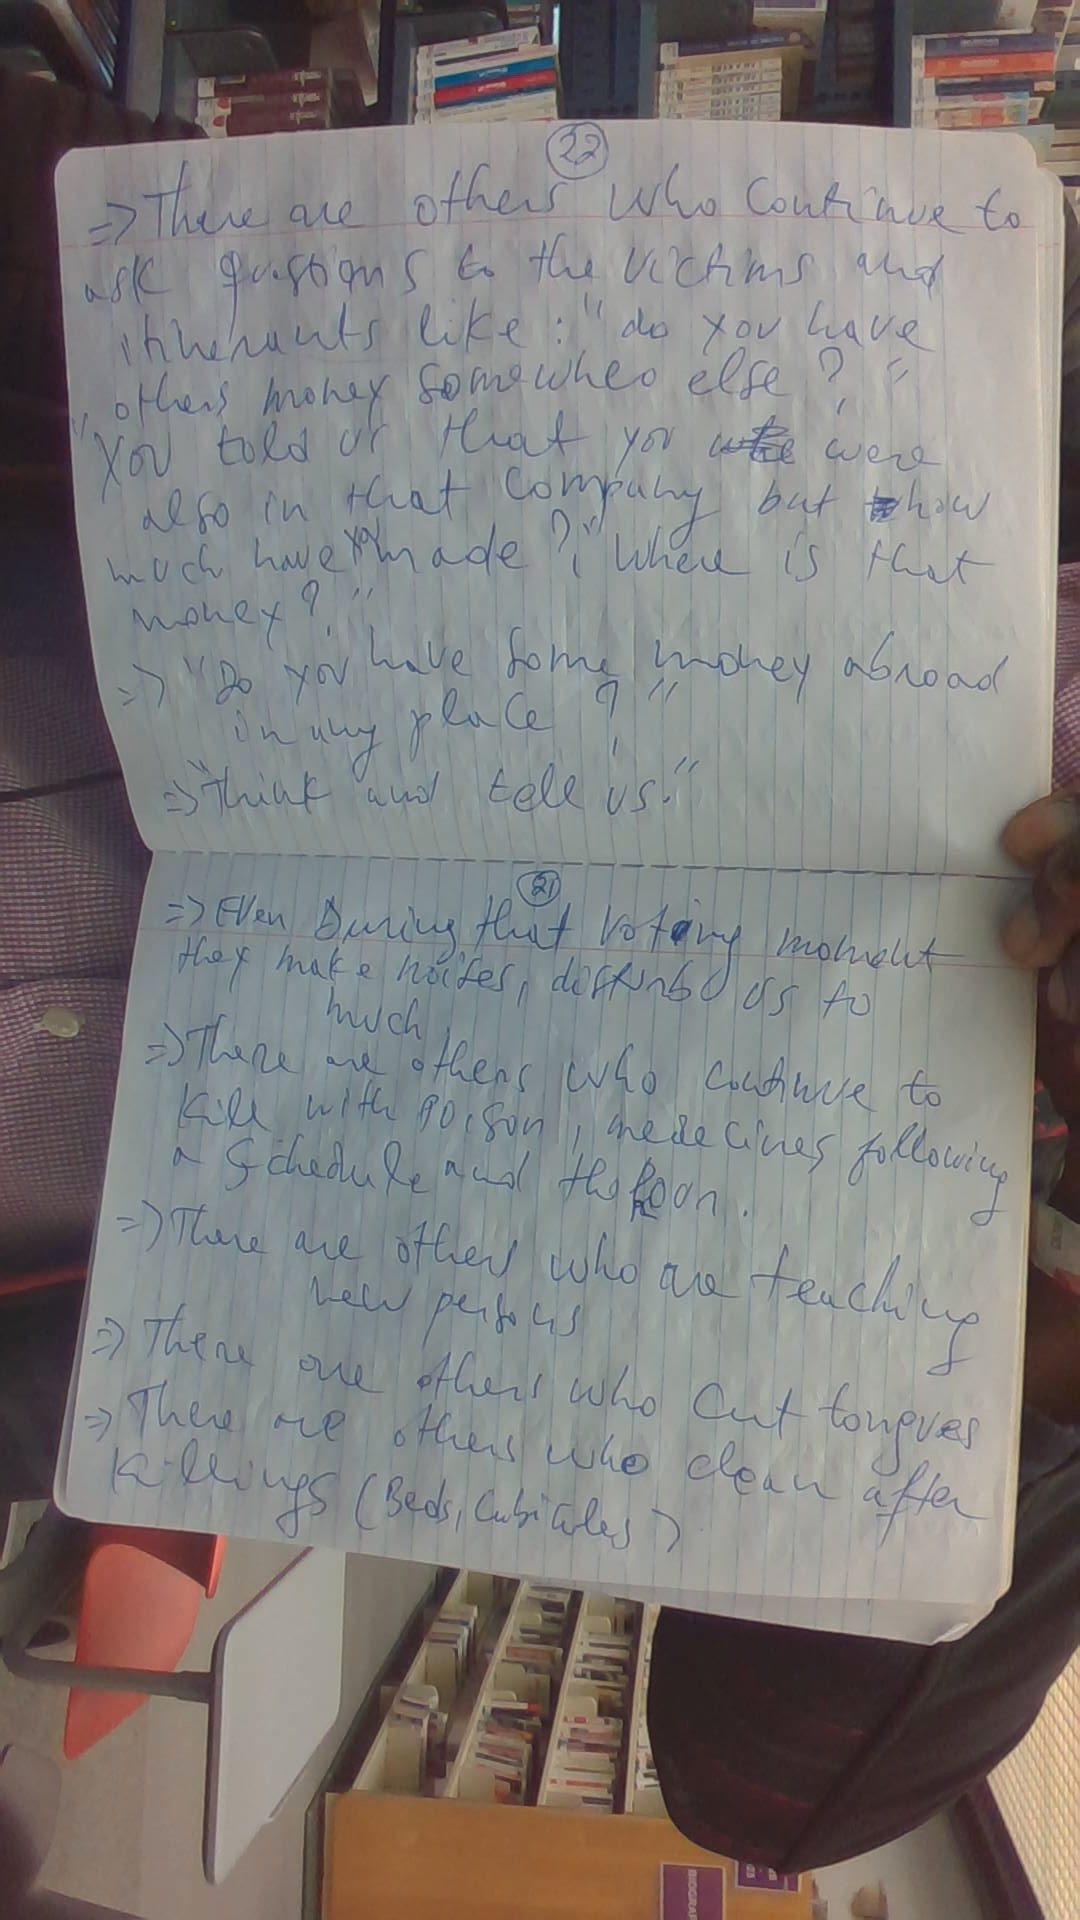 22
=> There are others who continue to
ask questions to the victims and
inherants like : "do you have
others money somewheo else ? "
"You told us that you were
also in that company but how
much have you made ? ," where is that
money ? "
=> "Do you have some money abroad
in any place ? "
=> "Think and tell us."
21
=> Even During that voting moment
they make noises, disturb us to
much,
=> There are others who continue to
kill with poison, medecines following
a schedule and the
=> There are others who are teaching
new persons
=> There are others who cut tongues
=> There are others who clean after
killings (Beds, cubicules)
BIOGRAP